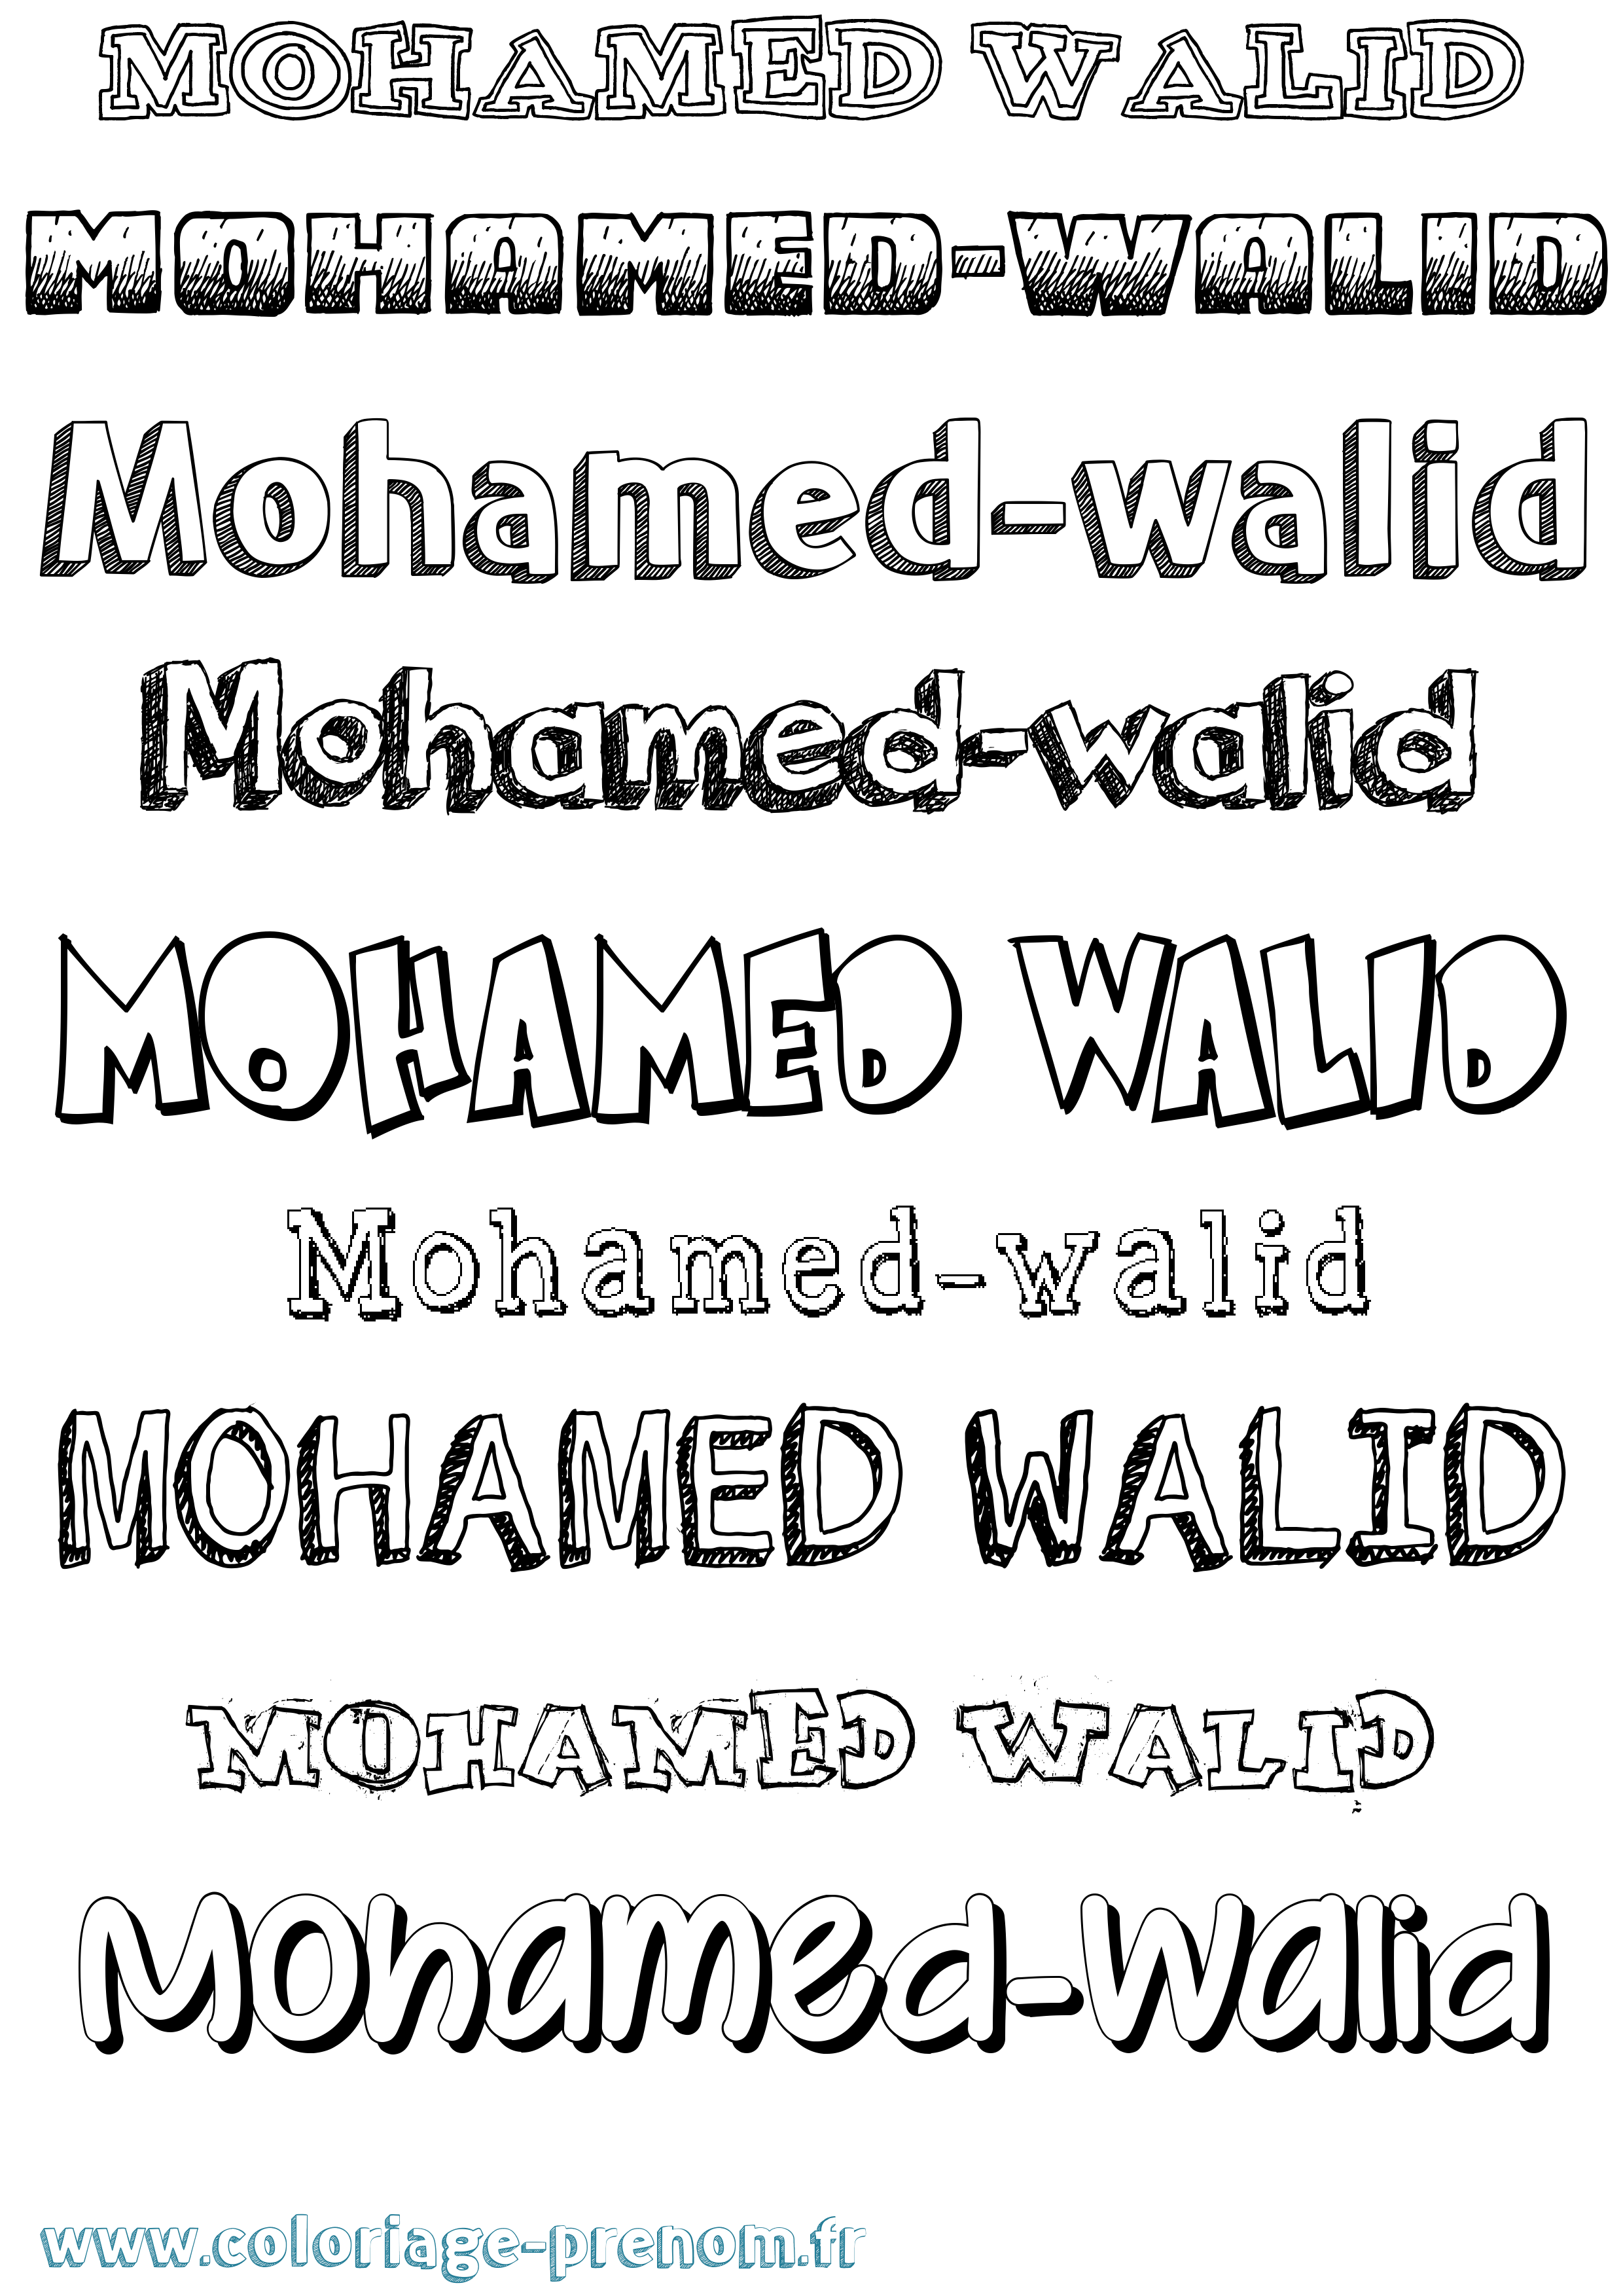 MOHAMED WALID
MOHAMED-WALID
Mohamed-walid
Mohamed-walid
MOHAMED WALID
Mohamed-walid
MOHAMED WALID
MOHAMED WALID
Mohamed-walid
www.coloriage-prenom.fr